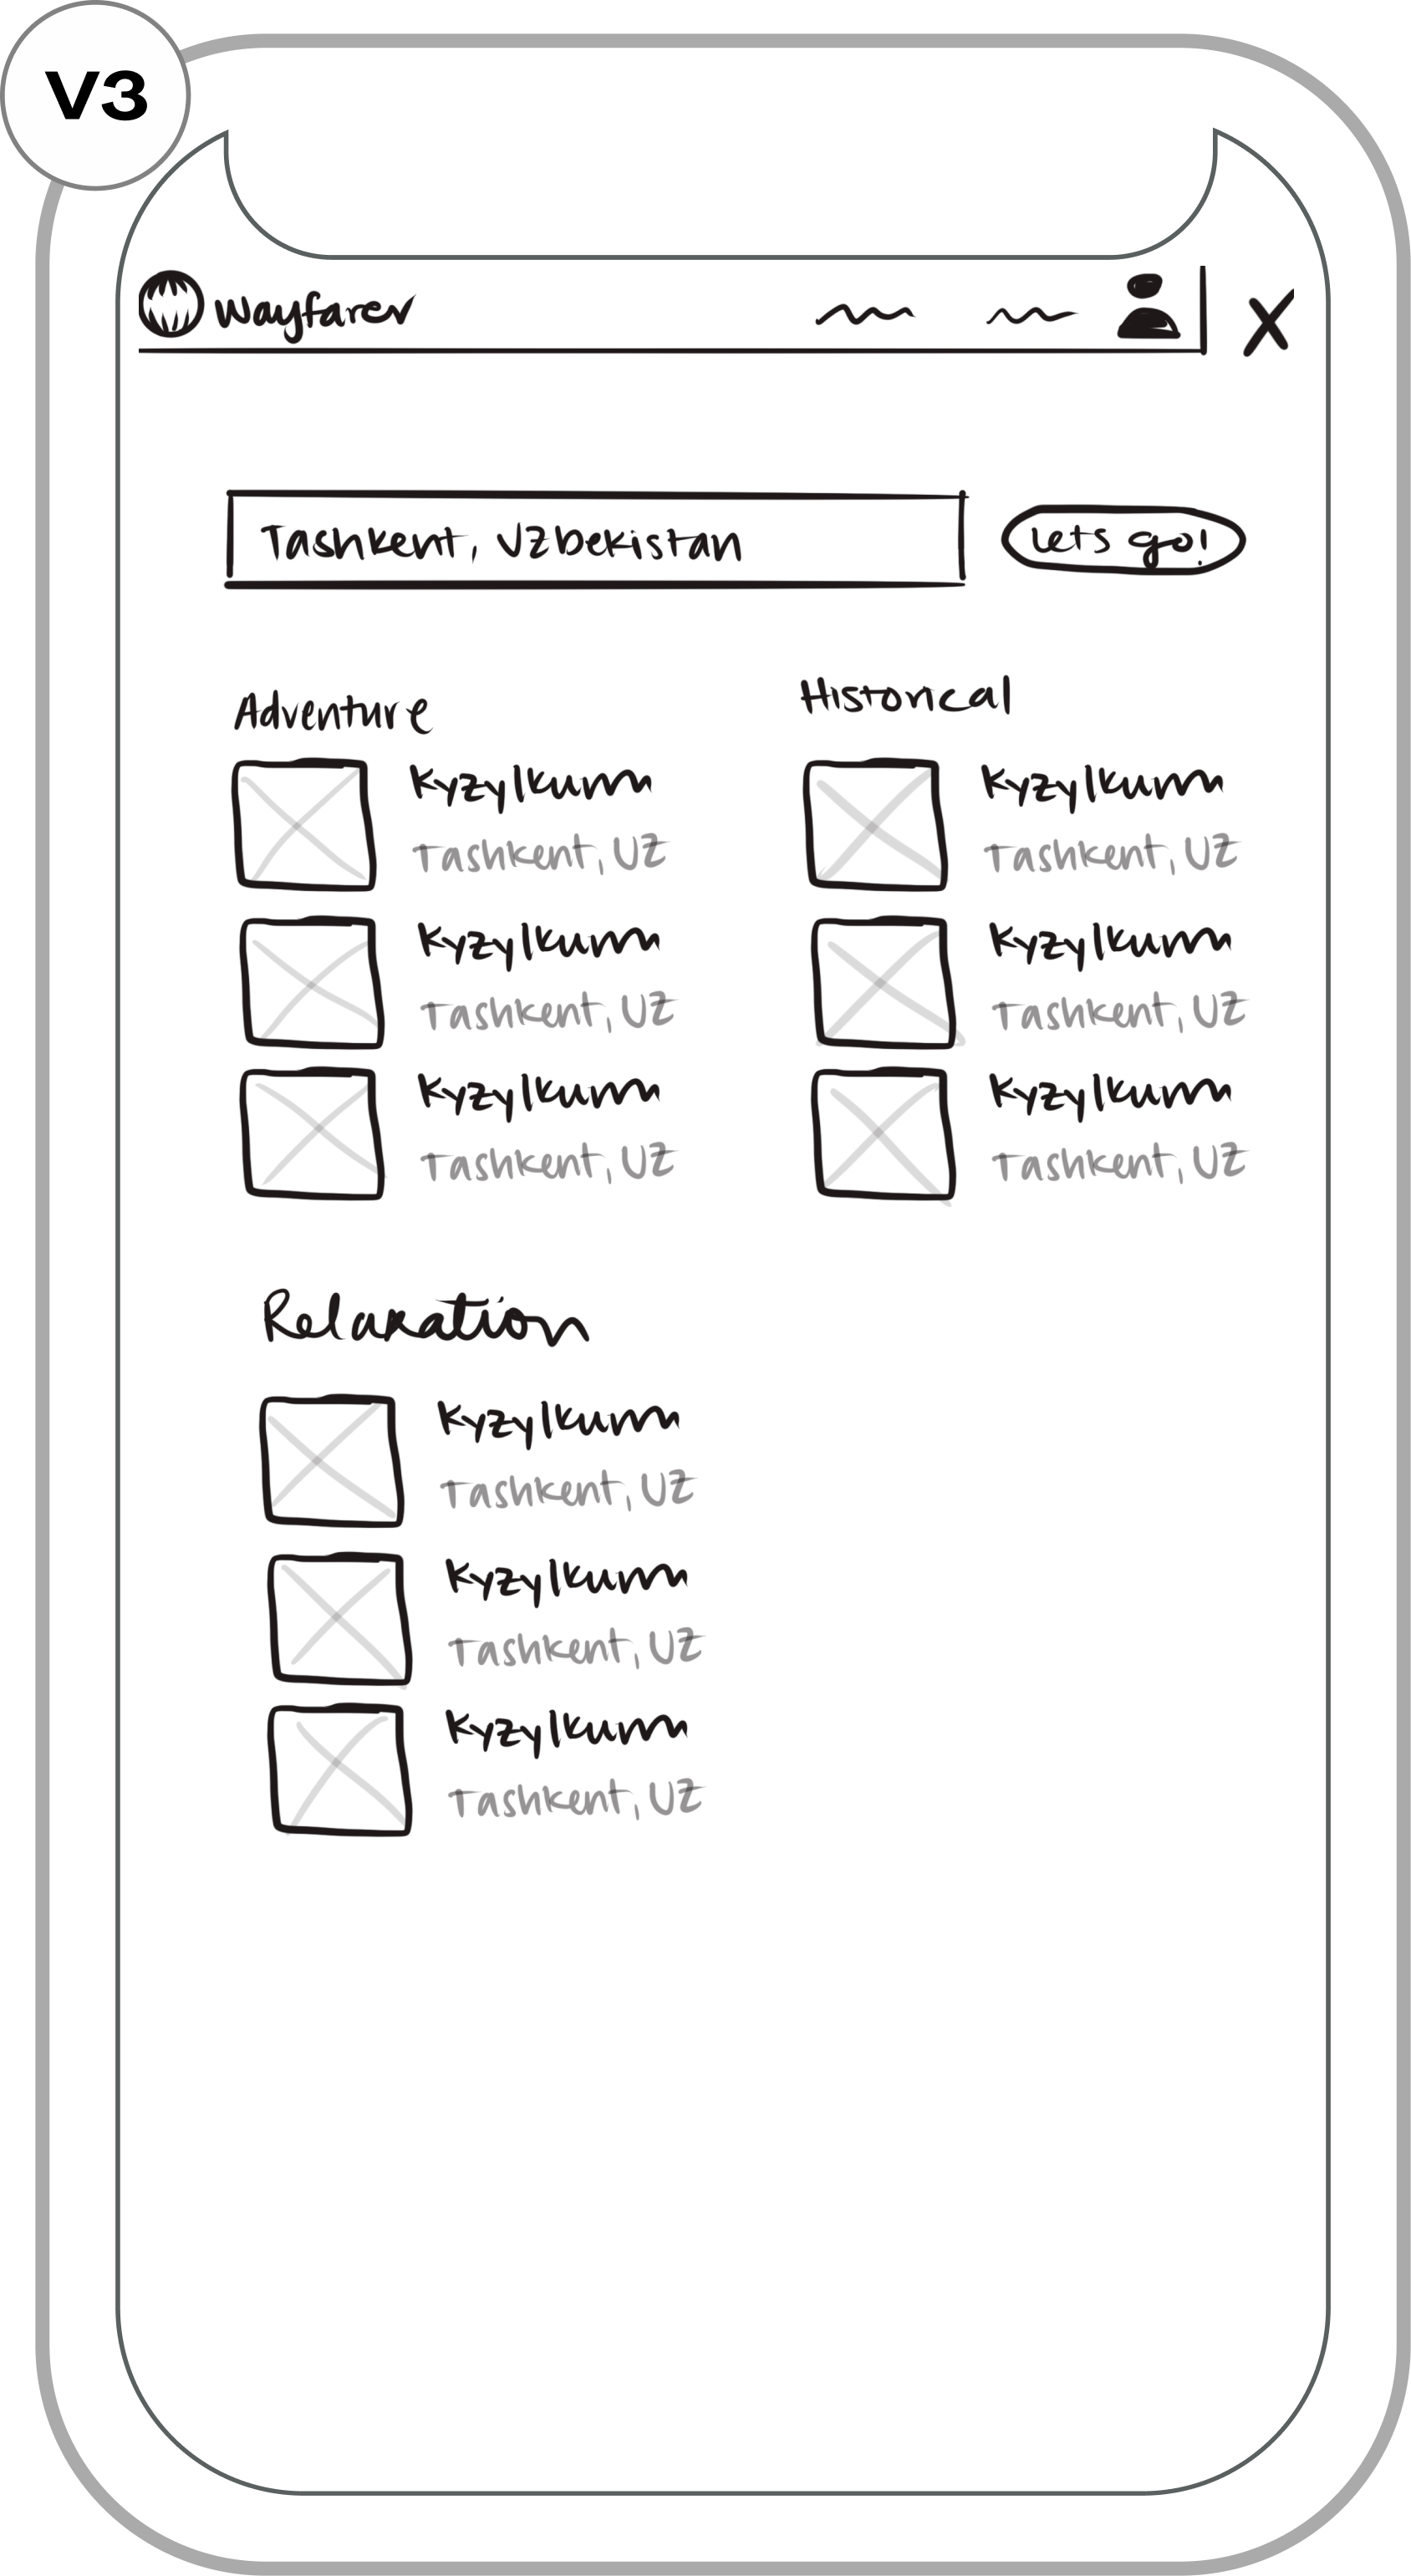 V3
wayfarer
X
Tashkent, Uzbekistan
Lets go!
Adventure
Kyzylkum
Tashkent, UZ
Kyzylkum
Tashkent, UZ
Kyzylkum
Tashkent, UZ
Historical
Kyzylkum
Tashkent, UZ
Kyzylkum
Tashkent, UZ
Kyzylkum
Tashkent, UZ
Relaxation
Kyzylkum
Tashkent, UZ
Kyzylkum
Tashkent, UZ
Kyzylkum
Tashkent, UZ